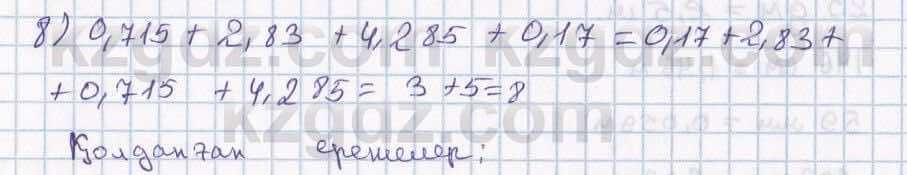 8) 0,715 + 2,83 + 4,285 + 0,17 = 0,17 + 2,83 +
+ 0,715 + 4,285 = 3 + 5 = 8
Қолданған ережелер:
kzgdz.com
kzgdz.com